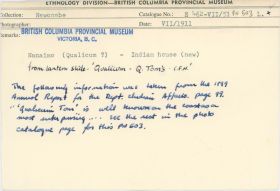 ETHNOLOGY DIVISION—BRITISH COLUMBIA PROVINCIAL MUSEUM
Collection: Newcombe Catalogue No.: E 462-VII/51 PN 603
Photographer: Date: VII/1911
Remarks: BRITISH COLUMBIA PROVINCIAL MUSEUM
VICTORIA, B. C.
Nanaimo (Qualicum ?) - Indian house (new)
from lantern slide 'Qualicum - Q. Tom's - C.F.N.'
The following information was taken from the 1889
Annual Report for the Dept. Indian Affairs page 99.
"'Qualicum Tom' is well known on the coast as a
most enterprising... see the rest in the photo
catalogue page for this PN 603.